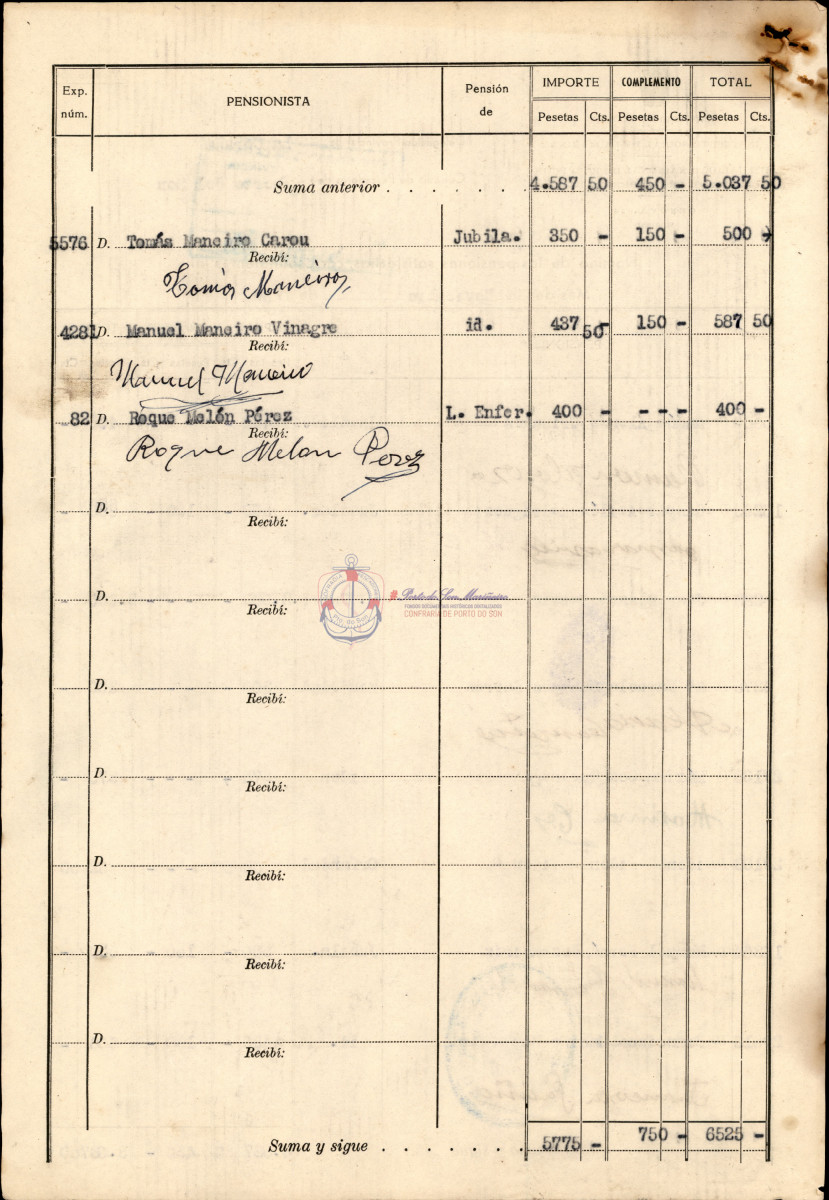 Exp. núm. PENSIONISTA Pensión de IMPORTE COMPLEMENTO TOTAL
Pesetas Cts. Pesetas Cts. Pesetas Cts.
Suma anterior . . . . . . . 4.587 50 450 - 5.037 50
5576 D. Tomás Maneiro Carou Jubila. 350 - 150 - 500 -
Recibí:
Tomás Maneiro
4281 D. Manuel Maneiro Vinagre id. 437 50 150 - 587 50
Recibí:
Manuel Maneiro
82 D. Roque Melón Pérez L. Enfer. 400 - - - - - 400 -
Recibí:
Roque Melon Perez
D.
Recibí:
D.
Recibí:
# Porto do Son Mariñeiro
FONDOS DOCUMENTAIS HISTÓRICOS DIXITALIZADOS
CONFRARÍA DE PORTO DO SON
Pto. do Son
D.
Recibí:
D.
Recibí:
D.
Recibí:
D.
Recibí:
D.
Recibí:
Suma y sigue . . . . . . . 5775 - 750 - 6525 -